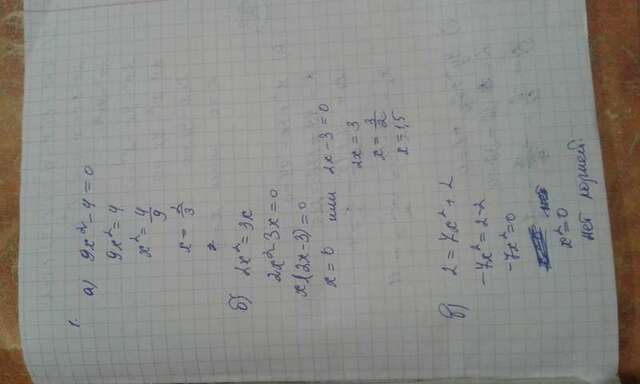 1.
а) 9x² - 4 = 0
9x² = 4
x² = 4/9
x = 2/3
б) 2x² = 3x
2x² - 3x = 0
x(2x - 3) = 0
x = 0 или 2x - 3 = 0
2x = 3
x = 3/2
x = 1,5
в) 2 = 7x² + 2
-7x² = 2-2
-7x² = 0
x² = 0
нет корней.